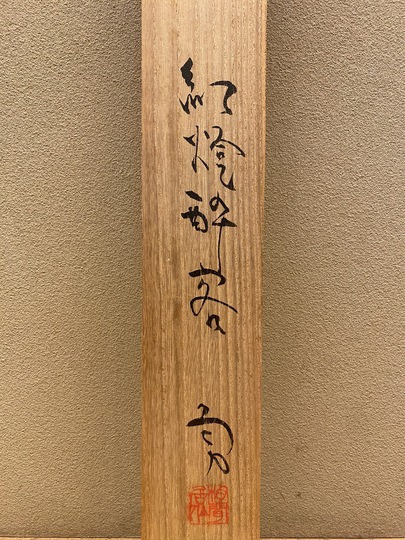 紅燈酔客
勇